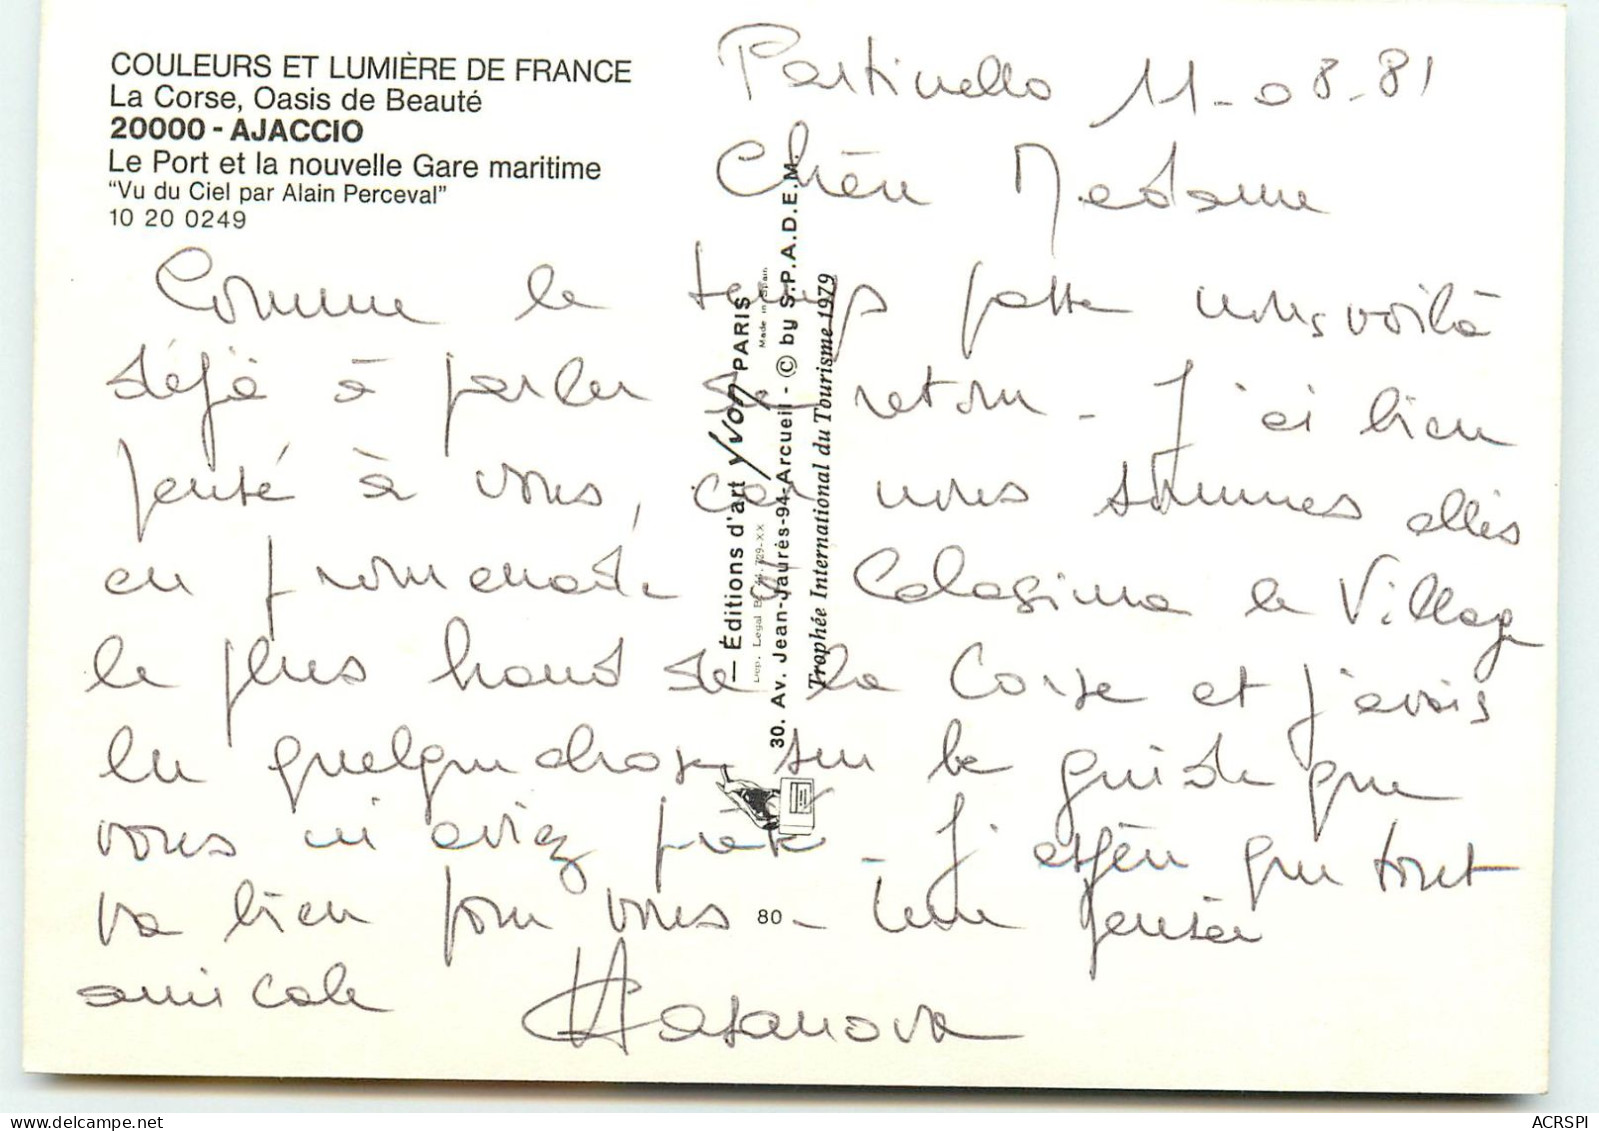 COULEURS ET LUMIÈRE DE FRANCE
La Corse, Oasis de Beauté
20000 - AJACCIO
Le Port et la nouvelle Gare maritime
"Vu du Ciel par Alain Perceval"
10 20 0249
Partinello 11-08-81
Chère Madame
Comme le temps passe nous voilà
déjà à parler de retour - J'ai bien
pensé à vous, car nous sommes allés
en promenade à Calasima le Village
le plus haut de la Corse et j'avais
lu quelque chose sur le guide que
vous m'aviez prêté - J'espère que tout
va bien pour vous - Une pensée
amicale Casanova
— Éditions d'art yvon PARIS
Made in Spain
Dep. Legal B.
30. Av. Jean-Jaurès-94-Arcueil - © by S.P.A.D.E.M.
Trophée International du Tourisme 1979
80
ACRSPI